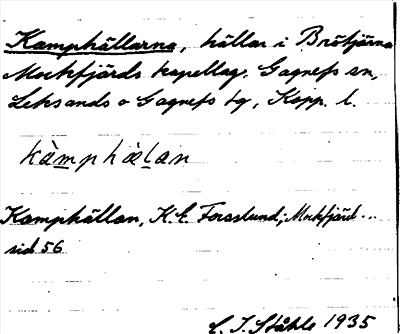 Kamphällarna, hällar i Brötjärna
Mockfjärds kapellag, Gagnefs sn,
Leksands o Gagnefs tg, Kopp. l.
kàmphàlan
Kamphällan, K. E. Forsslund, Mockfjärd...
sid 56
C. I. Ståhle 1935